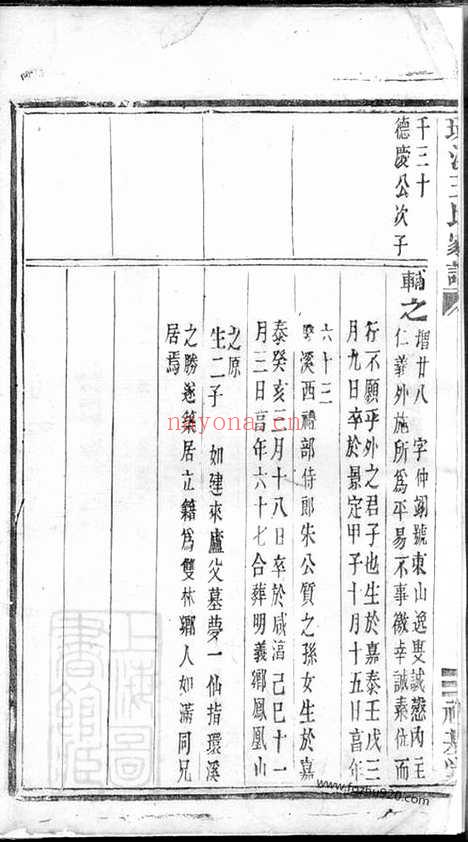 環溪王氏家譜
千三十
德慶公次子
輔之
增廿八 字仲翊號東山逸叟誠慤內主
仁義外施所為平易不事徼幸誠素位而
行不願乎外之君子也生於嘉泰壬戌三
月九日卒於景定甲子十月十五日高年
六十三
溪西禮部侍郎朱公質之孫女生於嘉
泰癸亥三月十八日卒於咸淳己巳十一
月三日高年六十七合葬明義鄉鳳凰山
之原
生二子 如建來廬父墓夢一仙指環溪
之勝遂築居立籍為雙林鄉人如滿同兄
居焉
上海圖書館藏
nayona.cn
www.fgzbu920.com